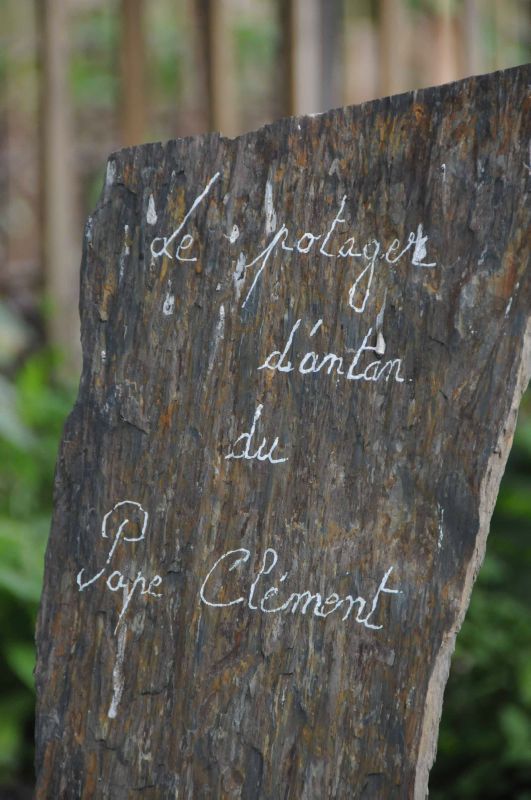 Le potager
d'antan
du
Pape Clément